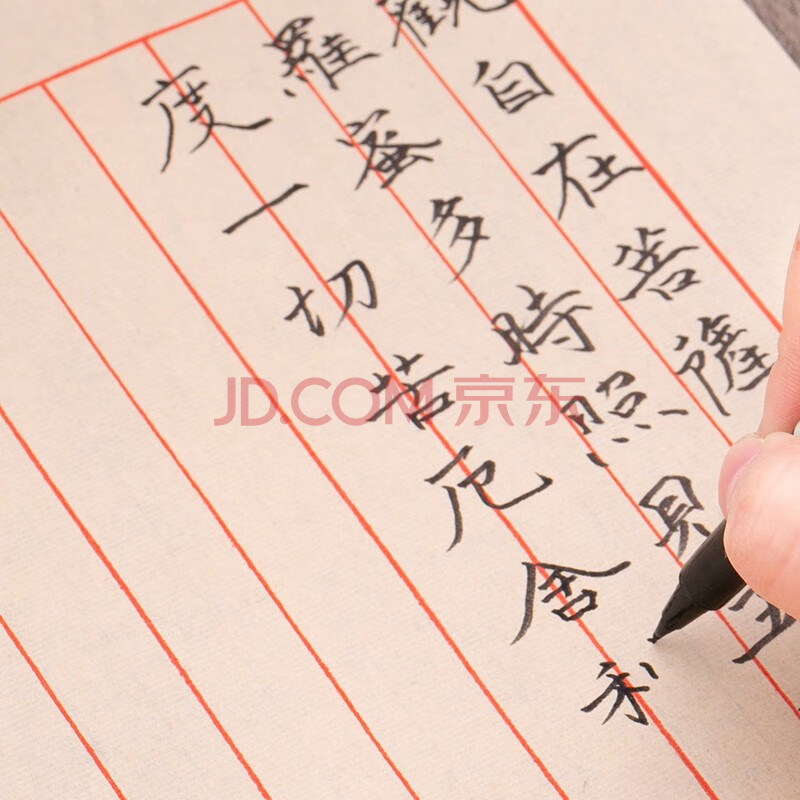 觀自在菩薩
羅蜜多時照見
度一切苦厄舍利
JD.COM 京东